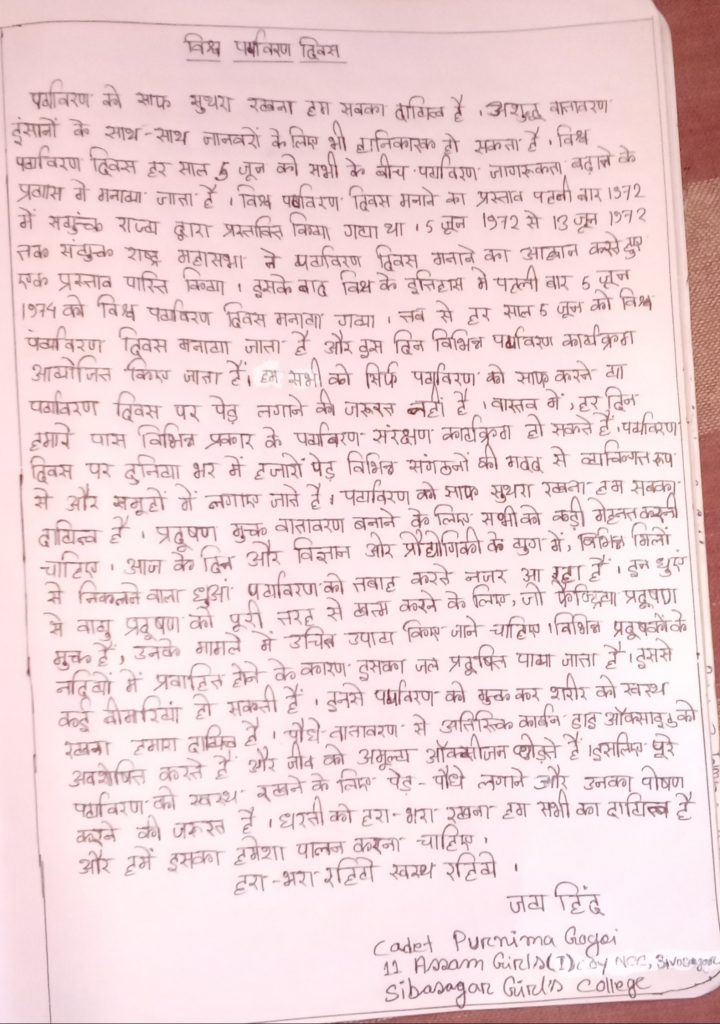 विश्व पर्यावरण दिवस
पर्यावरण को साफ सुथरा रखना हम सबका दायित्व है । अशुद्ध वातावरण
इंसानों के साथ-साथ जानवरों के लिए भी हानिकारक हो सकता है । विश्व
पर्यावरण दिवस हर साल 5 जून को सभी के बीच पर्यावरण जागरूकता बढ़ाने के
प्रयास में मनाया जाता है । विश्व पर्यावरण दिवस मनाने का प्रस्ताव पहली बार 1972
में सयुंक्त राज्य द्वारा प्रस्तावित किया गया था । 5 जून 1972 से 13 जून 1972
तक संयुक्त राष्ट्र महासभा ने पर्यावरण दिवस मनाने का आह्वान करते हुए
एक प्रस्ताव पारित किया । इसके बाद विश्व के इतिहास में पहली बार 5 जून
1974 को विश्व पर्यावरण दिवस मनाया गया । तब से हर साल 5 जून को विश्व
पर्यावरण दिवस मनाया जाता है और इस दिन विभिन्न पर्यावरण कार्यक्रम
आयोजित किए जाता हैं। हम सभी को सिर्फ पर्यावरण को साफ करने या
पर्यावरण दिवस पर पेड़ लगाने की जरूरत नहीं है । वास्तव में, हर दिन
हमारे पास विभिन्न प्रकार के पर्यावरण संरक्षण कार्यक्रम हो सकते हैं । पर्यावरण
दिवस पर दुनिया भर में हजारों पेड़ विभिन्न संगठनों की मदद से व्यक्तिगत रूप
से और समूहों में लगाए जाते हैं । पर्यावरण को साफ सुथरा रखना हम सबका
दायित्व है । प्रदूषण मुक्त वातावरण बनाने के लिए सभी को कड़ी मेहनत करनी
चाहिए । आज के दिन और विज्ञान ओर प्रौद्योगिकी के युग में, विभिन्न मिलों
से निकलने वाला धुआं पर्यावरण को तबाह करते नजर आ रहा है । इन धुएं
से वायु प्रदूषण को पूरी तरह से खत्म करने के लिए, जो फैक्ट्रियां प्रदूषण
मुक्त हैं, उनके मामले में उचित उपाय किए जाने चाहिए । विभिन्न प्रदूषकों के
नदियों में प्रवाहित होने के कारण इसका जल प्रदूषित पाया जाता है । इससे
कई बीमारियां हो सकती हैं । इनसे पर्यावरण को मुक्त कर शरीर को स्वस्थ
रखना हमारा दायित्व है । पौधे वातावरण से अतिरिक्त कार्बन डाइ ऑक्साइड को
अवशोषित करते हैं और जीव को अमूल्य ऑक्सीजन छोड़ते हैं । इसलिए पूरे
पर्यावरण को स्वस्थ रखने के लिए पेड़-पौधे लगाने और उनका पोषण
करने की जरूरत है । धरती को हरा-भरा रखना हम सभी का दायित्व है
और हमें इसका हमेशा पालन करना चाहिए ।
हरा-भरा रहिये स्वस्थ रहिये ।
जय हिंद
Cadet Purnima Gogoi
11 Assam Girl's (I) Coy NCC, Sivasagar
Sibasagar Girl's College